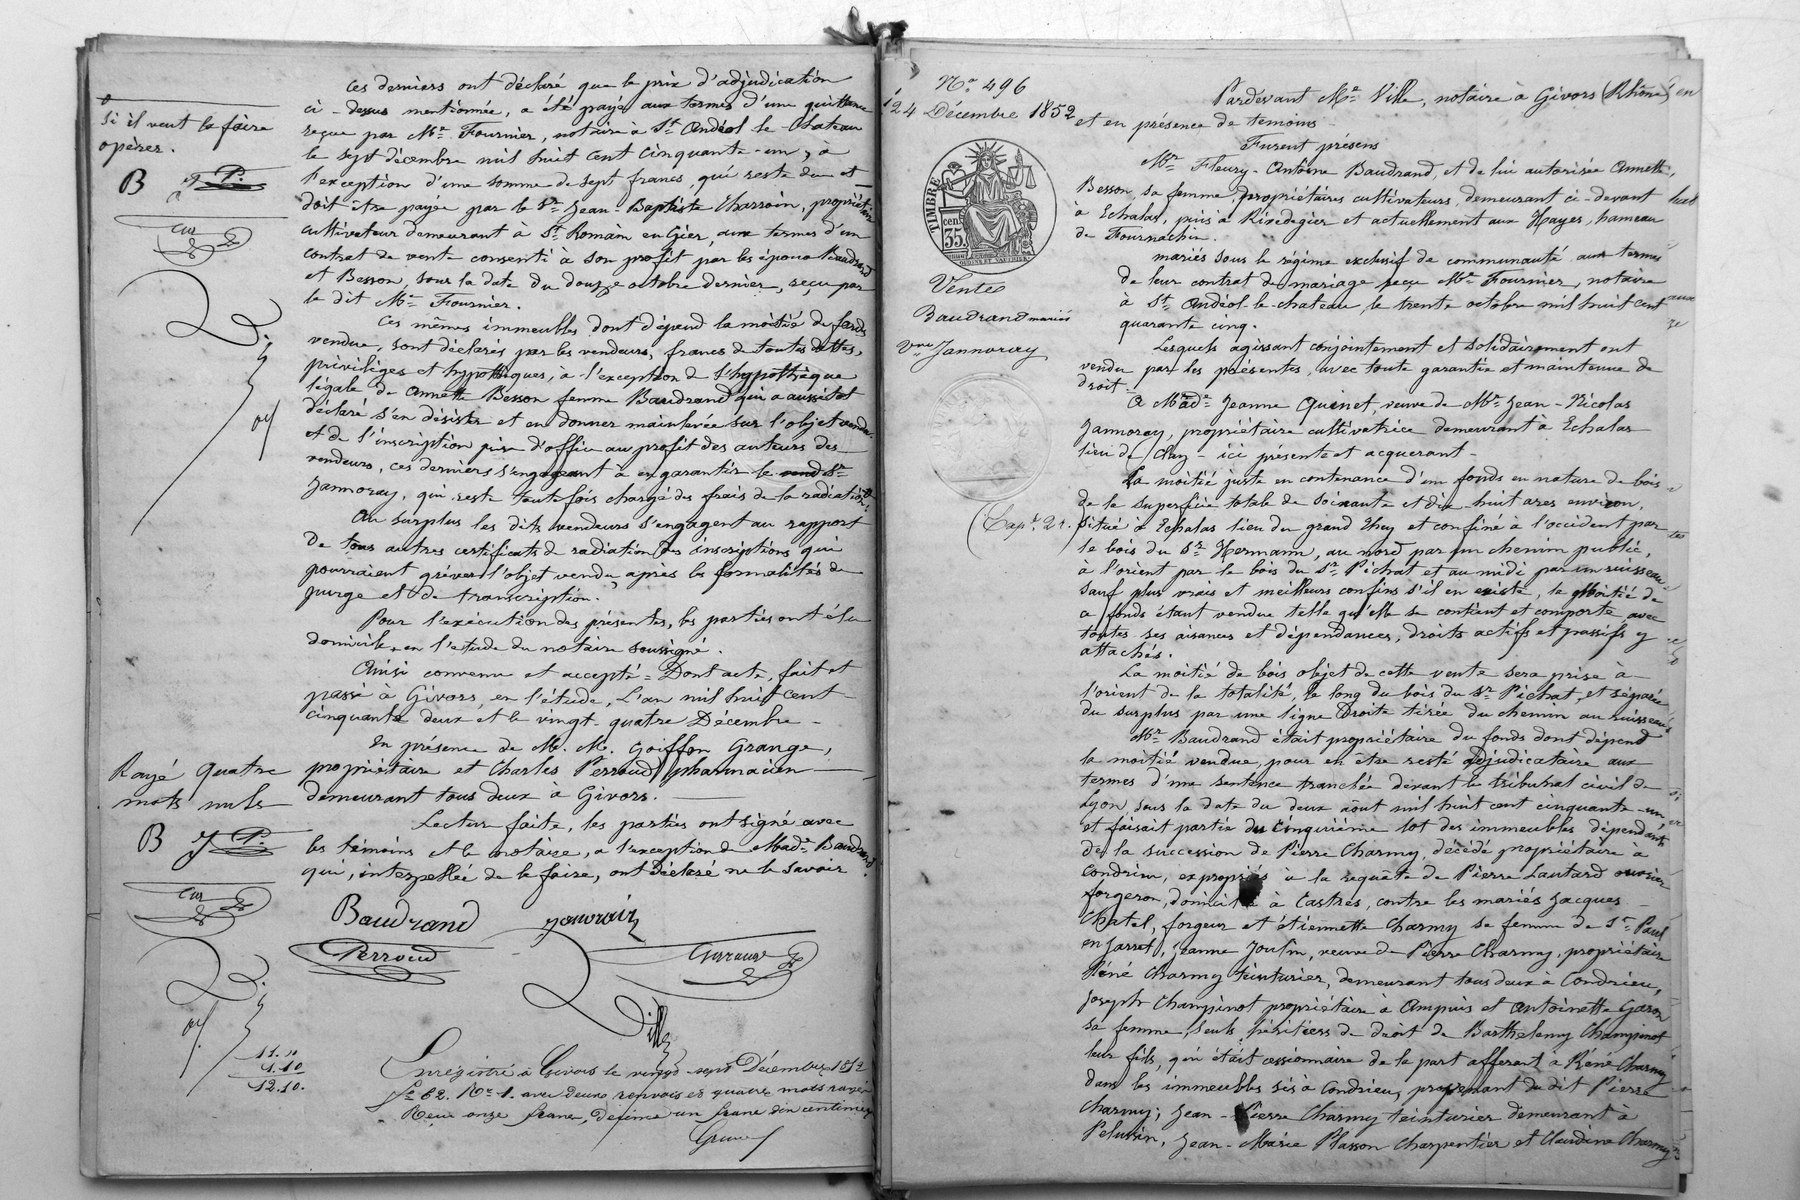 ces derniers ont déclaré que le prix d'adjudication
ci-dessus mentionnée, a été payé aux termes d'une quittance
reçue par Me Fournier, notaire à St Andéol le Chateau
le sept décembre mil huit cent cinquante-un, à
l'exception d'une somme de sept francs, qui reste due et
doit être payée par le Sr Jean-Baptiste Charroin, propriétaire
cultivateur demeurant à St Romain en Gier, aux termes d'un
contrat de vente consenti à son profit par les époux Baudrand
et Besson, sous la date du douze octobre dernier, reçu par
le dit Me Fournier.
Ces mêmes immeubles dont dépend la moitié du fonds
vendue, sont déclarés par les vendeurs, francs de toutes dettes,
privilèges et hypothèques, à l'exception de l'hypothèque
légale de Annette Besson femme Baudrand qui a aussitot
déclaré s'en désister et en donner mainlevée sur l'objet vendu
et de l'inscription prise d'office au profit des auteurs des
vendeurs, ces derniers s'engageant à en garantir le vend Sr
Jannoray, qui reste toutefois chargé des frais de la radiation.
Au surplus les dits vendeurs s'engagent au rapport
de tous autres certificats de radiation des inscriptions qui
pourraient gréver l'objet vendu après les formalités de
purge et de transcription.
Pour l'exécution des présentes, les parties ont élu
domicile en l'etude du notaire soussigné.
Ainsi convenu et accepté = Dont acte, fait et
passé à Givors, en l'étude, L'an mil huit cent
cinquante deux et le vingt-quatre Décembre -
En présence de M. M. Goiffon Grange,
propriétaire et Charles Perroud pharmacien
demeurant tous deux à Givors.
Lecture faite, les parties ont signé avec
les témoins et le notaire, a l'exception de Made Baudrand
qui, interpellée de le faire, ont déclaré ne le savoir
Baudrand
Perroud
Ville
Enregistré à Givors le vingt-sept Décembre 1852
fo 62. No 1. avec deux renvois et quatre mots rayés
Reçu onze francs, Décime un franc dix centimes
si il veut le faire
opérer.
B
P.
Rayé quatre
mots nuls
B
P.
11. "
1.10
12.10.
No 496
24 Décembre 1852
TIMBRE
35 cent
Vente
Baudrand mariés
Vve Jannoray
Pardevant Me Ville, notaire à Givors (Rhône)
et en présence de témoins
Furent présens
Mr Fleury-Antoine Baudrand, et de lui autorisée Annette
Besson, sa femme, propriétaires cultivateurs, demeurant ci-devant
à Echalas, puis à Rivedegier et actuellement aux Hayes, hameau
de Fournachin.
mariés sous le régime exclusif de communauté aux termes
de leur contrat de mariage reçu Me Fournier, notaire
à St Andéol-le-chateau, le trente octobre mil huit cent
quarante cinq.
Lesquels agissant conjointement et solidairement ont
vendu par les présentes, avec toute garantie et maintenue de
droit.
A Made Jeanne Quenet, veuve de Mr Jean-Nicolas
Jannoray, propriétaire cultivatrice demeurant à Echalas
lieu de Chey - ici présente et acquerant -
La moitié juste en contenance d'un fonds en nature de bois
de la superficie totale de soixante et dix-huit ares environ,
situé à Echalas lieu du grand Chey et confiné à l'occident par
le bois du Sr Hermann, au nord par un chemin public,
à l'orient par le bois du Sr Pichat et au midi par un ruisseau
sauf plus vrais et meilleurs confins s'il en existe, la moitié de
ce fonds étant vendue telle qu'elle se contient et comporte avec
toutes ses aisances et dépendances, droits actifs et passifs y
attachés.
La moitié de bois objet de cette vente sera prise à
l'orient de la totalité, le long du bois du Sr Pichat, et séparée
du surplus par une ligne droite tirée du chemin au ruisseau
Mr Baudrand était propriétaire du fonds dont dépend
la moitié vendue, pour en être resté adjudicataire aux
termes d'une sentence tranchée devant le tribunal civil de
Lyon sous la date du deux aout mil huit cent cinquante-un,
et faisait partie du cinquième lot des immeubles dépendants
de la succession de Pierre Charmy, décédé propriétaire à
Condrieu, expropriés à la requête de Pierre Lautard ouvrier
forgeron, domicilié à Castres, contre les mariés Jacques
Chatel, forgeur et étiennette Charmy sa femme de St Paul
en Jarret, Jeanne Joulin, veuve de Pierre Charmy, propriétaire
Réné Charmy teinturier, demeurant tous deux à Condrieu,
Joseph Champinot propriétaire à Ampuis et Antoinette Garon
sa femme, seuls héritiers de droit de Barthelemy Champinot
leur fils, qui était cessionnaire de la part afferant à Réné Charmy
dans les immeubles sis à Condrieu, provenant du dit Pierre
Charmy; Jean-Pierre Charmy teinturier demeurant à
Pelussin, Jean-Marie Plasson charpentier et Claudine Charmy